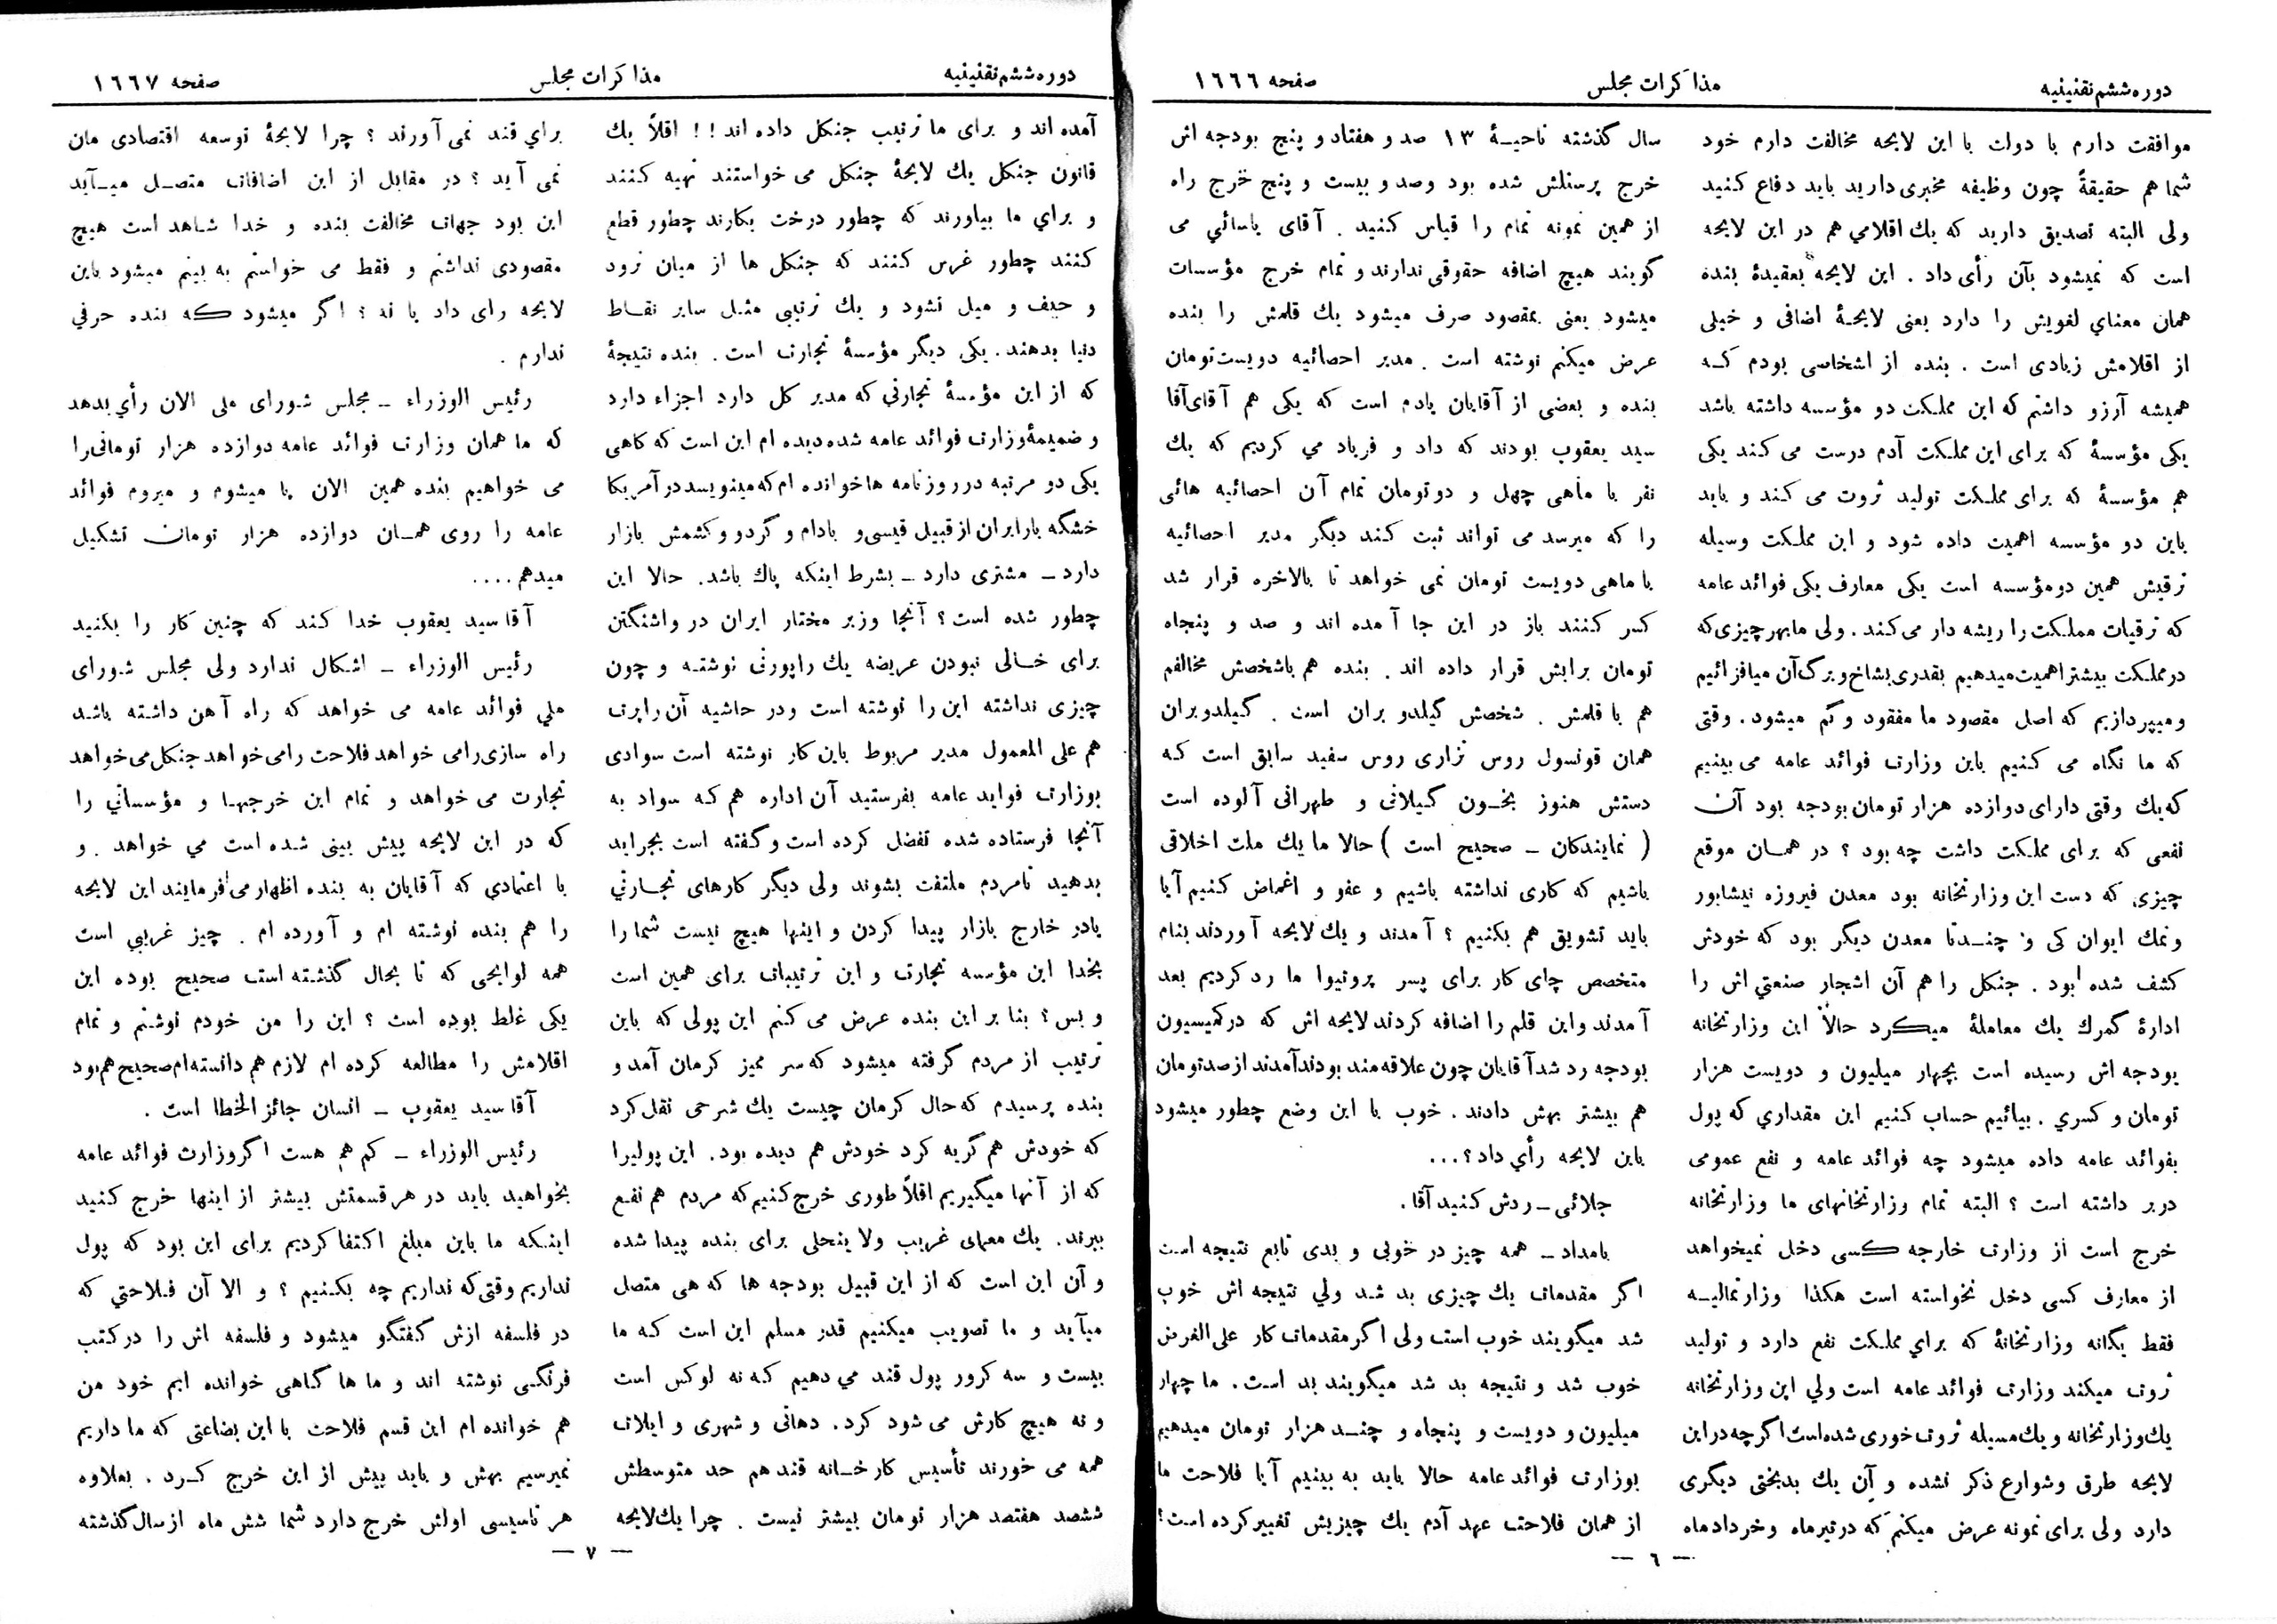 دوره ششم تقنینیه
مذاکرات مجلس
صفحه ١٦٦٦
موافقت دارم با دولت با این لایحه مخالفت دارم خود
شما هم حقیقةً چون وظیفه مخبری دارید باید دفاع کنید
ولی البته تصدیق دارید که یك اقلامي هم در این لایحه
است که نمیشود بآن رأی داد . این لایحه بعقیدهٔ بنده
همان معنای لغویش را دارد یعنی لایحهٔ اضافی و خیلی
از اقلامش زیادی است . بنده از اشخاصی بودم که
همیشه آرزو داشتم که این مملکت دو مؤسسه داشته باشد
یکی مؤسسهٔ که برای این مملکت آدم درست می کند یکی
هم مؤسسهٔ که برای مملکت تولید ثروت می کند و باید
باین دو مؤسسه اهمیت داده شود و این مملکت وسیله
ترقیش همین دو مؤسسه است یکی معارف یکی فوائد عامه
که ترقیات مملکت را ریشه دار می کند . ولی ما بهر چیزی که
در مملکت بیشتر اهمیت میدهیم بقدری بشاخ و برگ آن میافزائیم
و میپردازیم که اصل مقصود ما مفقود و گم میشود . وقتی
که ما نگاه می کنیم باین وزارت فوائد عامه می بینیم
که یك وقتی دارای دوازده هزار تومان بودجه بود آن
نفعی که برای مملکت داشت چه بود ؟ در همان موقع
چیزی که دست این وزارتخانه بود معدن فیروزه نیشابور
و نمك ایوان کی و چند تا معدن دیگر بود که خودش
کشف شده بود . جنکل را هم آن اشجار صنعتي اش را
ادارهٔ گمرك یك معاملهٔ میکرد حالا این وزارتخانه
بودجه اش رسیده است بچهار میلیون و دویست هزار
تومان و کسري . بیائیم حساب کنیم این مقداري که پول
بفوائد عامه داده میشود چه فوائد عامه و نفع عمومی
در بر داشته است ؟ البته تمام وزارتخانهای ما وزارتخانه
خرج است از وزارت خارجه کسی دخل نمیخواهد
از معارف کسی دخل نخواسته است هکذا وزارتمالیه
فقط یگانه وزارتخانهٔ که براي مملکت نفع دارد و تولید
ثروت میکند وزارت فوائد عامه است ولي این وزارتخانه
یك وزارتخانه و یك مسیله ثروت خوری شده است اگر چه در این
لایحه طرق و شوارع ذکر نشده و آن یك بدبختی دیگری
دارد ولی برای نمونه عرض میکنم که در تیر ماه و خرداد ماه
سال گذشته ناحیهٔ ١٣ صد و هفتاد و پنج بودجه اش
خرج پرسنلش شده بود و صد و بیست و پنج خرج راه
از همین نمونه تمام را قیاس کنید . آقای یاسائي می
گویند هیچ اضافه حقوقی ندارند و تمام خرج مؤسسات
میشود یعنی بمقصود صرف میشود یك قلمش را بنده
عرض میکنم نوشته است . مدیر احصائیه دویست تومان
بنده و بعضی از آقایان یادم است که یکی هم آقای آقا
سید یعقوب بودند که داد و فریاد مي کردیم که یك
نفر با ماهی چهل و دو تومان تمام آن احصائیه هائی
را که میرسد می تواند ثبت کند دیگر مدیر احصائیه
با ماهی دویست تومان نمی خواهد تا بالاخره قرار شد
کسر کنند باز در این جا آمده اند و صد و پنجاه
تومان برایش قرار داده اند . بنده هم باشخصش مخالفم
هم با قلمش . شخصش گیلدو بران است . گیلدو بران
همان قونسول روس تزاری روس سفید سابق است که
دستش هنوز بخون گیلانی و طهرانی آلوده است
( نمایندکان ــ صحیح است ) حالا ما یك ملت اخلاقی
باشیم که کاری نداشته باشیم و عفو و اغماض کنیم آیا
باید تشویق هم بکنیم ؟ آمدند و یك لایحه آوردند بنام
متخصص چای کار برای پسر پروتیوا ما رد کردیم بعد
آمدند و این قلم را اضافه کردند لایحه اش که در کمیسیون
بودجه رد شد آقایان چون علاقه مند بودند آمدند از صد تومان
هم بیشتر بهش دادند . خوب با این وضع چطور میشود
باین لایحه رأي داد ؟...
جلائی ــ ردش کنید آقا .
بامداد ــ همه چیز در خوبی و بدی تابع نتیجه است
اگر مقدمات یك چیزی بد شد ولي نتیجه اش خوب
شد میگویند خوب است ولی اگر مقدمات کار علی الفرض
خوب شد و نتیجه بد شد میگویند بد است . ما چهار
میلیون و دویست و پنجاه و چند هزار تومان میدهیم
بوزارت فوائد عامه حالا باید به بینیم آیا فلاحت ما
از همان فلاحت عهد آدم یك چیزیش تغییر کرده است ؟
— ٦ —
دوره ششم تقنینیه
مذاکرات مجلس
صفحه ١٦٦٧
آمده اند و برای ما ترتیب جنکل داده اند ! ! اقلاً یك
قانون جنکل یك لایحهٔ جنکل می خواستند تهیه کنند
و براي ما بیاورند که چطور درخت بکارند چطور قطع
کنند چطور غرس کنند که جنکل ها از میان نرود
و حیف و میل نشود و یك ترتیبی مثل سایر نقاط
دنیا بدهند . یکی دیگر مؤسسهٔ تجارت است . بنده نتیجهٔ
که از این مؤسسهٔ تجارتي که مدیر کل دارد اجزاء دارد
و ضمیمهٔ وزارت فوائد عامه شده دیده ام این است که کاهی
یکی دو مرتبه در روزنامه ها خوانده ام که مینویسد در آمریکا
خشگه بار ایران از قبیل قیسی و بادام و گردو و کشمش بازار
دارد ــ مشتری دارد ــ بشرط اینکه پاك باشد . حالا این
چطور شده است ؟ آنجا وزیر مختار ایران در واشنگتن
برای خالی نبودن عریضه یك راپورتی نوشته و چون
چیزی نداشته این را نوشته است و در حاشیه آن راپرت
هم علی المعمول مدیر مربوط باین کار نوشته است سوادی
بوزارت فواید عامه بفرستید آن اداره هم که سواد به
آنجا فرستاده شده تفضل کرده است و گفته است بجراید
بدهید تا مردم ملتفت بشوند ولی دیگر کارهای تجارتي
یا در خارج بازار پیدا کردن و اینها هیچ نیست شما را
بخدا این مؤسسه تجارت و این ترتیبات برای همین است
و بس ؟ بنا بر این بنده عرض می کنم این پولی که باین
ترتیب از مردم گرفته میشود که سر ممیز کرمان آمد و
بنده پرسیدم که حال کرمان چیست یك شرحی نقل کرد
که خودش هم گریه کرد خودش هم دیده بود . این پولیرا
که از آنها میگیریم اقلاً طوری خرج کنیم که مردم هم نفع
ببرند . یك معمای غریب و لا ینحلی برای بنده پیدا شده
و آن این است که از این قبیل بودجه ها که هی متصل
میآید و ما تصویب میکنیم قدر مسلم این است که ما
بیست و سه کرور پول قند مي دهیم که نه لوکس است
و نه هیچ کارش می شود کرد . دهاتی و شهری و ایلات
همه می خورند تأسیس کارخانه قند هم حد متوسطش
ششصد هفتصد هزار تومان بیشتر نیست . چرا یك لایحه
براي قند نمی آورند ؟ چرا لایحهٔ توسعه اقتصادی مان
نمی آید ؟ در مقابل از این اضافات متصل میآید
این بود جهات مخالفت بنده و خدا شاهد است هیچ
مقصودی نداشتم و فقط می خواستم به بینم میشود باین
لایحه رای داد یا نه ؟ اگر میشود که بنده حرفي
ندارم .
رئیس الوزراء ــ مجلس شورای ملی الان رأي بدهد
که ما همان وزارت فوائد عامه دوازده هزار تومانی را
می خواهیم بنده همین الان پا میشوم و میروم فوائد
عامه را روی همان دوازده هزار تومان تشکیل
میدهم ....
آقا سید یعقوب خدا کند که چنین کار را بکنید
رئیس الوزراء ــ اشکال ندارد ولی مجلس شورای
ملي فوائد عامه می خواهد که راه آهن داشته باشد
راه سازی را می خواهد فلاحت را می خواهد جنکل می خواهد
تجارت می خواهد و تمام این خرجها و مؤسساتي را
که در این لایحه پیش بینی شده است مي خواهد . و
با اعتمادي که آقایان به بنده اظهار می فرمایند این لایحه
را هم بنده نوشته ام و آورده ام . چیز غریبي است
همه لوایحی که تا بحال گذشته است صحیح بوده این
یکی غلط بوده است ؟ این را من خودم نوشتم و تمام
اقلامش را مطالعه کرده ام لازم هم دانسته ام صحیح هم بود
آقا سید یعقوب ــ انسان جائز الخطا است .
رئیس الوزراء ــ کم هم هست اگر وزارت فوائد عامه
بخواهید باید در هر قسمتش بیشتر از اینها خرج کنید
اینکه ما باین مبلغ اکتفا کردیم برای این بود که پول
نداریم وقتی که نداریم چه بکنیم ؟ و الا آن فلاحتي که
در فلسفه ازش گفتگو میشود و فلسفه اش را در کتب
فرنگی نوشته اند و ما ها گاهی خوانده ایم خود من
هم خوانده ام این قسم فلاحت با این بضاعتی که ما داریم
نمیرسیم بهش و باید بیش از این خرج کرد . بعلاوه
هر تاسیسی اولش خرج دارد شما شش ماه از سال گذشته
— ٧ —